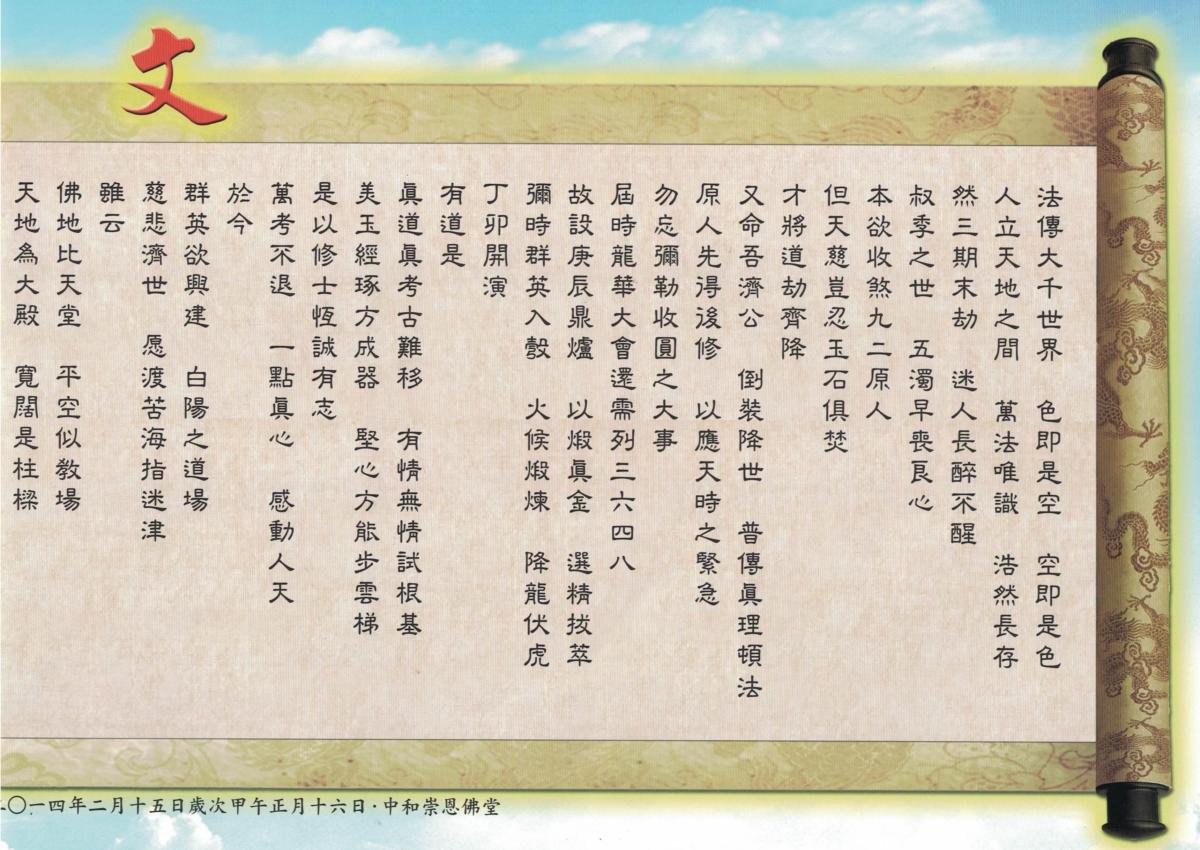 文
法傳大千世界　色即是空　空即是色
人立天地之間　萬法唯識　浩然長存
然三期末劫　迷人長醉不醒
叔季之世　五濁早喪良心
本欲收煞九二原人
但天慈豈忍玉石俱焚
才將道劫齊降
又命吾濟公　倒裝降世　普傳眞理頓法
原人先得後修　以應天時之緊急
勿忘彌勒收圓之大事
屆時龍華大會還需列三六四八
故設庚辰鼎爐　以煅眞金　選精拔萃
彌時群英入彀　火候煅煉　降龍伏虎
丁卯開演
有道是
眞道眞考古難移　有情無情試根基
美玉經琢方成器　堅心方能步雲梯
是以修士恆誠有志
萬考不退　一點眞心　感動人天
於今
群英欲興建　白陽之道場
慈悲濟世　愿渡苦海指迷津
雖云
佛地比天堂　平空似教場
天地為大殿　寬闊是柱樑
〇一四年二月十五日歲次甲午正月十六日·中和崇恩佛堂